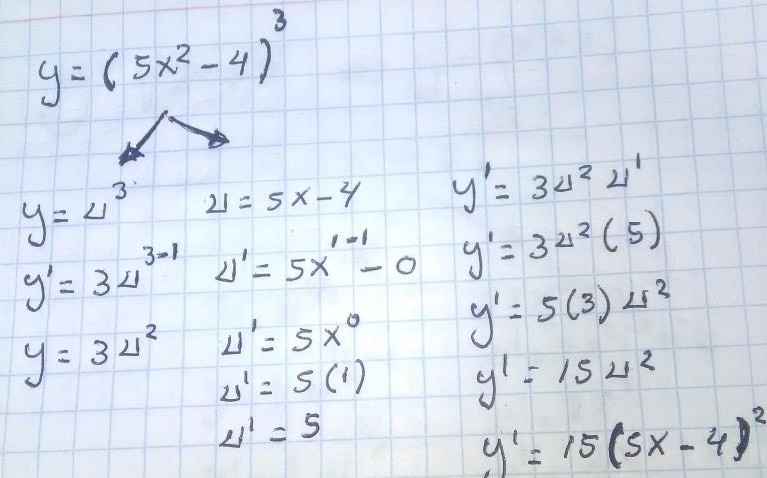 y = (5x² - 4)³
y = u³
y' = 3u³⁻¹
y = 3u²
u = 5x - 4
u' = 5x¹⁻¹ - 0
u' = 5x⁰
u' = 5(1)
u' = 5
y' = 3u² u'
y' = 3u² (5)
y' = 5(3)u²
y' = 15u²
y' = 15(5x - 4)²